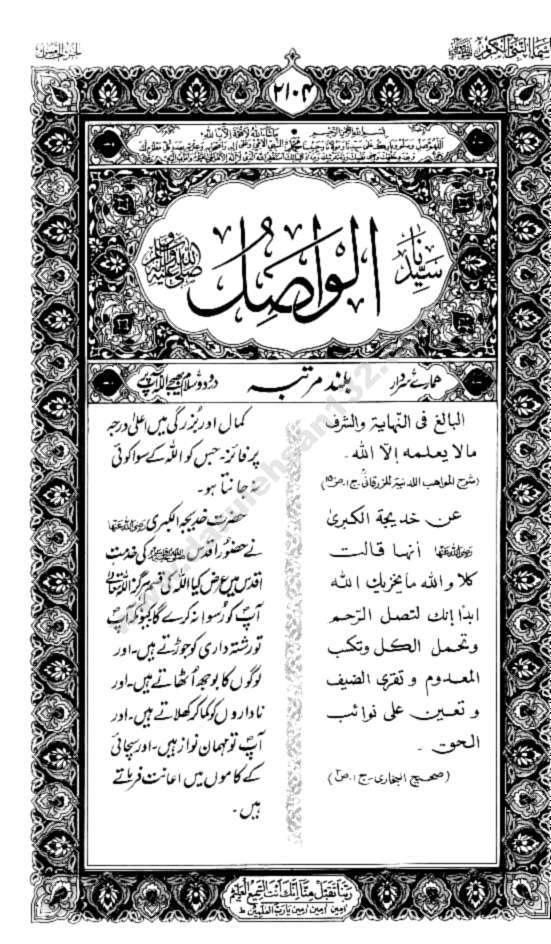 ۲۱۰۴
بسم الله الرحمن الرحيم • ماشاء الله لا قوة الا بالله
سيدنا الواصل صلى الله عليه وسلم
ہمارے سردار بلند مرتبہ درود و سلام بھیجے اللہ آپ پر
البالغ فى النهاية والشرف
مالا يعلمه إلا الله۔
(شرح المواهب اللدنية للزرقانى ج ۱، ص ۱۵)
عن خديجة الكبرىٰ
رضى الله عنها أنها قالت
كلا والله ما يخزيك الله
ابدًا إنك لتصل الرحم
وتحمل الكل وتكسب
المعدوم و تقرى الضيف
و تعين على نوائب
الحق ۔
(صحيح البخارى - ج ۱، ص ۳)
کمال اور بزرگی میں اعلیٰ درجہ
پر فائز۔ جس کو اللہ کے سوا کوئی
نہ جانتا ہو۔
حضرت خدیجہ الکبریٰ رضی اللہ عنہا
نے حضور اقدس ﷺ کی خدمت
اقدس میں عرض کیا اللہ کی قسم ہرگز اللہ تعالیٰ
آپ کو رسوا نہ کرے گا کیونکہ آپ
تو رشتہ داری کو جوڑتے ہیں۔ اور
لوگوں کا بوجھ اُٹھاتے ہیں۔ اور
ناداروں کو کما کر کھلاتے ہیں۔ اور
آپ تو مہمان نواز ہیں۔ اور سچائی
کے کاموں میں اعانت فرماتے
ہیں۔
ربنا تقبل منا انك انت السميع العليم
امين امين امين يا رب العلمين